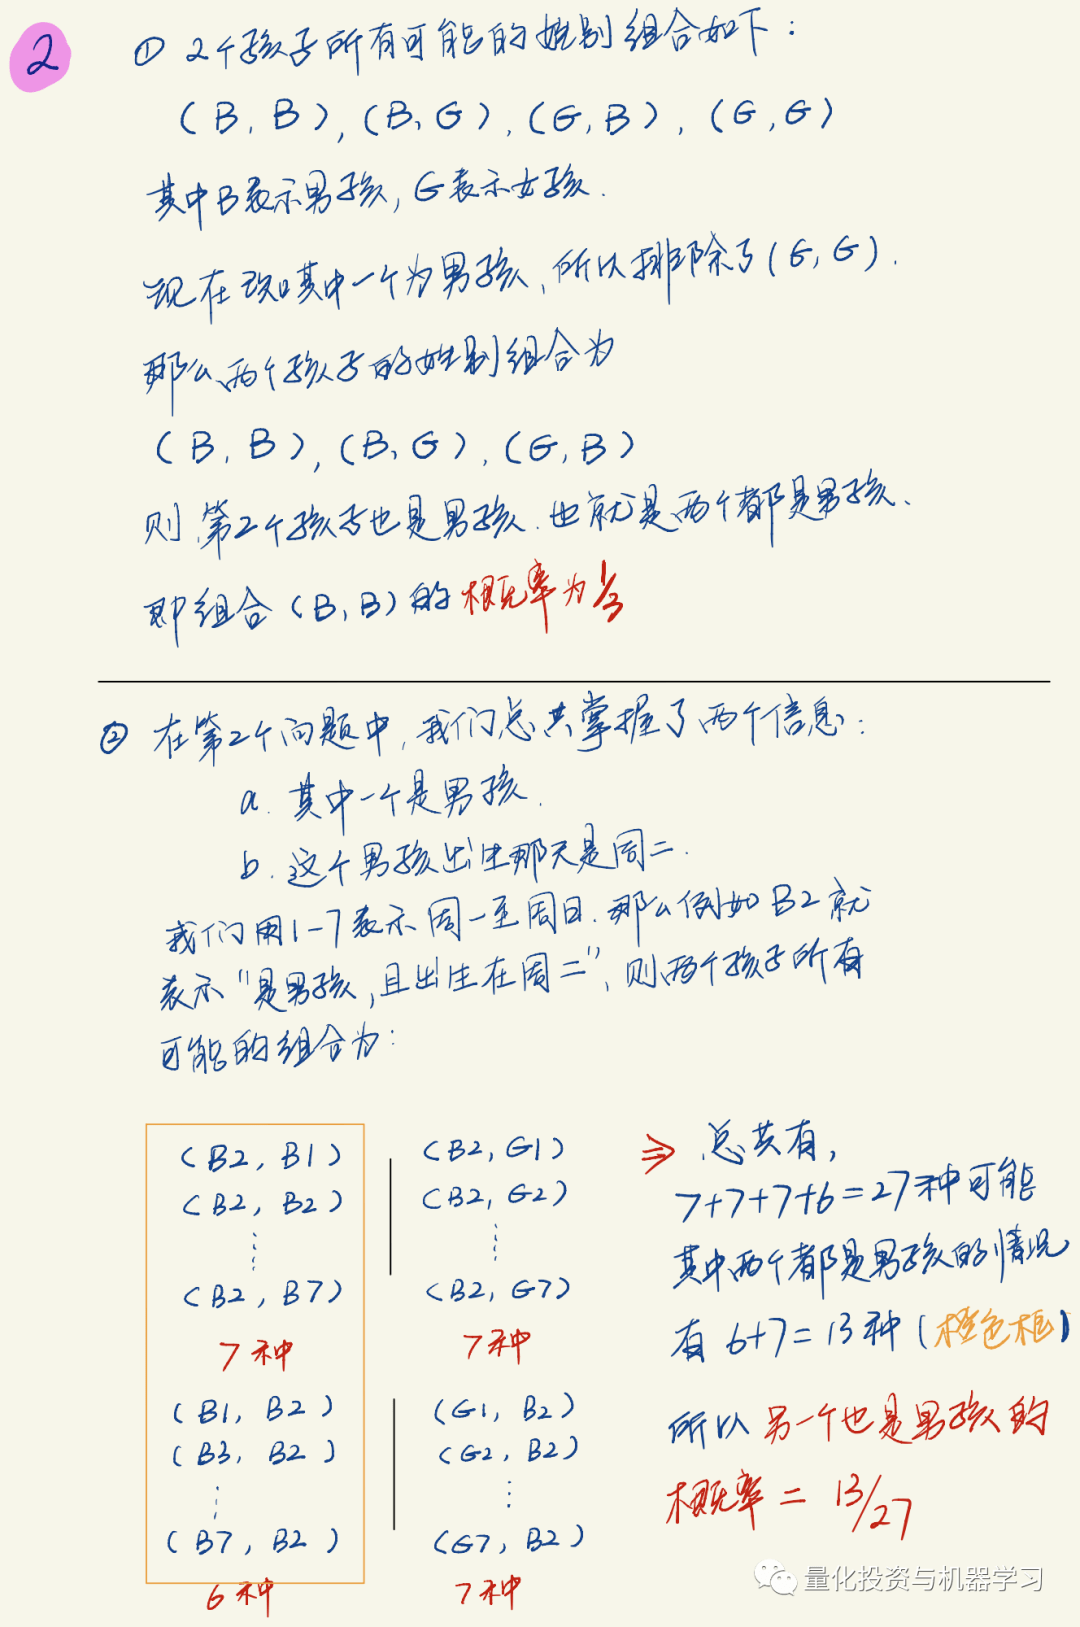 2
① 2个孩子所有可能的性别组合如下：
(B, B), (B, G), (G, B), (G, G)
其中B表示男孩, G表示女孩.
现在已知其中一个为男孩, 所以排除了(G, G).
那么两个孩子的性别组合为
(B, B), (B, G), (G, B)
则第2个孩子也是男孩. 也就是两个都是男孩、
即组合(B, B)的概率为1/3
② 在第2个问题中, 我们总共掌握了两个信息：
a. 其中一个是男孩.
b. 这个男孩出生那天是周二.
我们用1-7表示周一至周日. 那么例如B2就
表示"是男孩, 且出生在周二", 则两个孩子所有
可能的组合为：
(B2, B1)
(B2, B2)
⋮
(B2, B7)
7种
(B2, G1)
(B2, G2)
⋮
(B2, G7)
7种
(B1, B2)
(B3, B2)
⋮
(B7, B2)
6种
(G1, B2)
(G2, B2)
⋮
(G7, B2)
7种
⇒ 总共有,
7+7+7+6=27种可能
其中两个都是男孩的情况
有 6+7=13种(橙色框)
所以另一个也是男孩的
概率 = 13/27
量化投资与机器学习